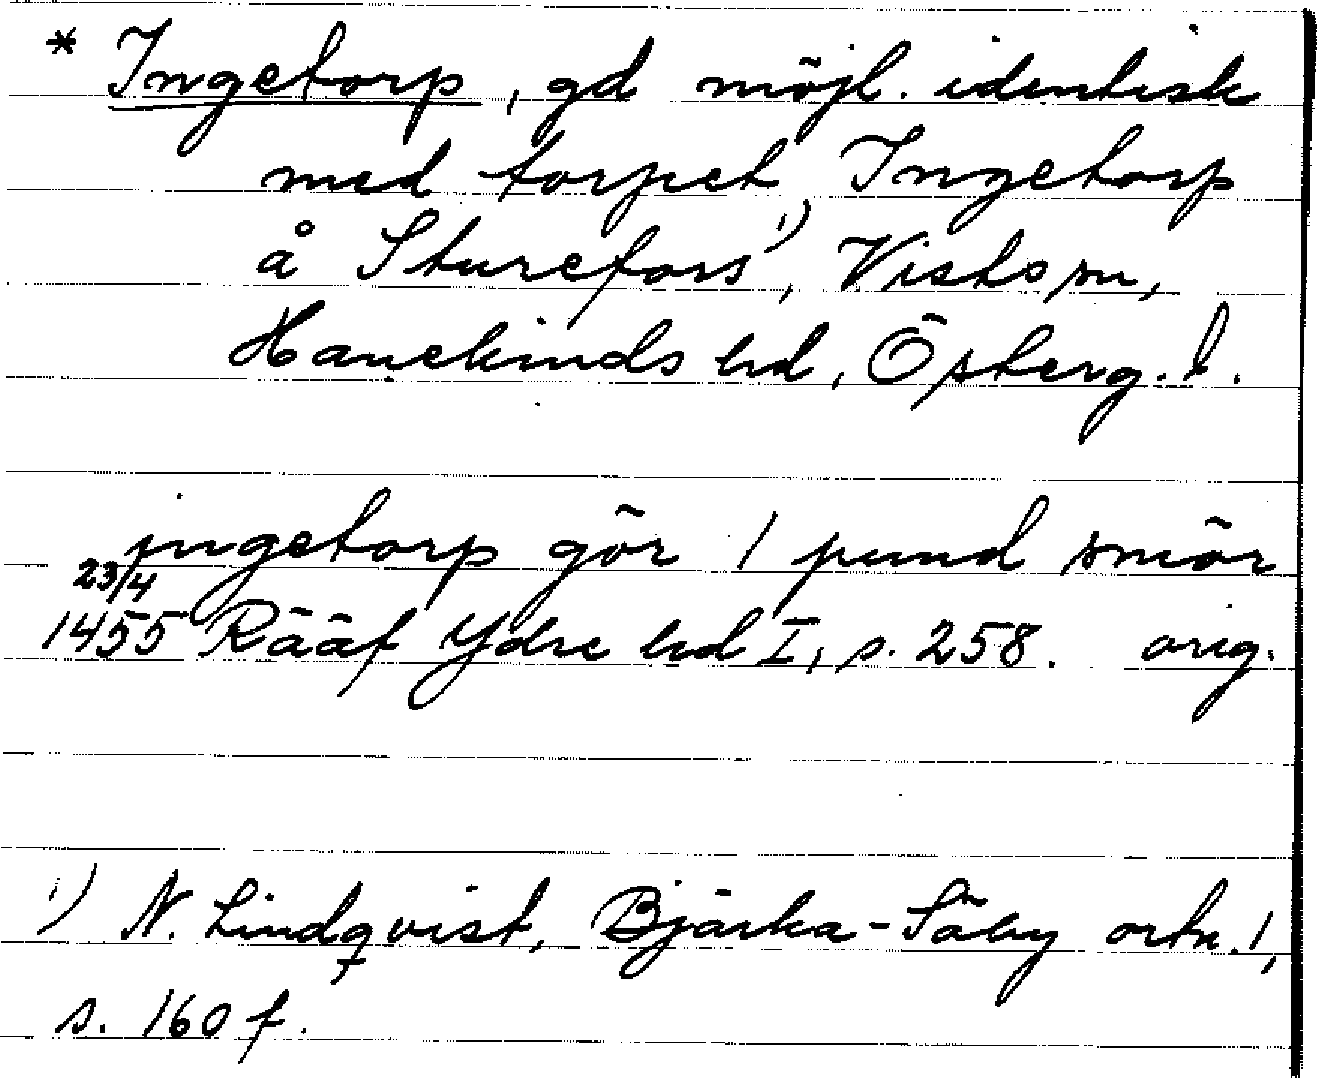 * Ingetorp, gd möjl. identisk
med torpet Ingetorp
å Sturefors ¹⁾, Vists sn,
Hanekinds hd, Österg. l.
jngetorp gör 1 pund smör
23/4
1455 Rääf Ydre hd I, s. 258. orig.
¹⁾ N. Lindqvist, Bjärka-Säby ortn. 1,
s. 160 f.